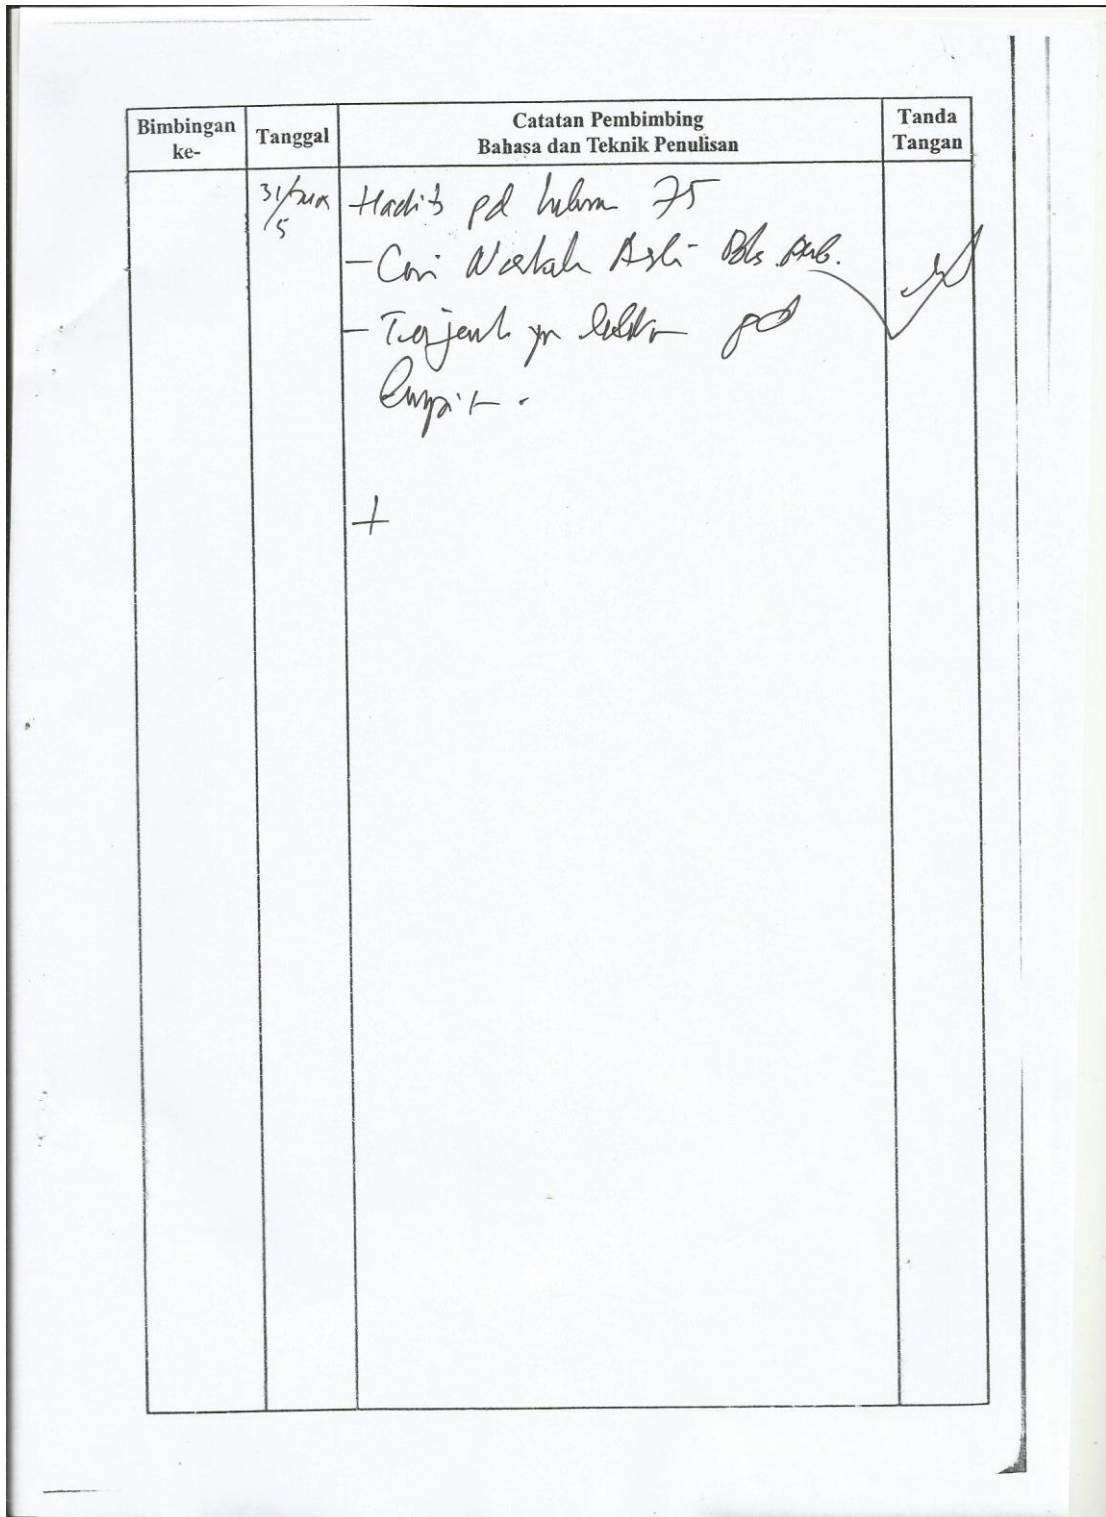 Bimbingan ke-
Tanggal
Catatan Pembimbing
Bahasa dan Teknik Penulisan
Tanda Tangan
31/
/5
Hadits pd 75
- Cari Naskah Asli Bhs. Arb.
- pd